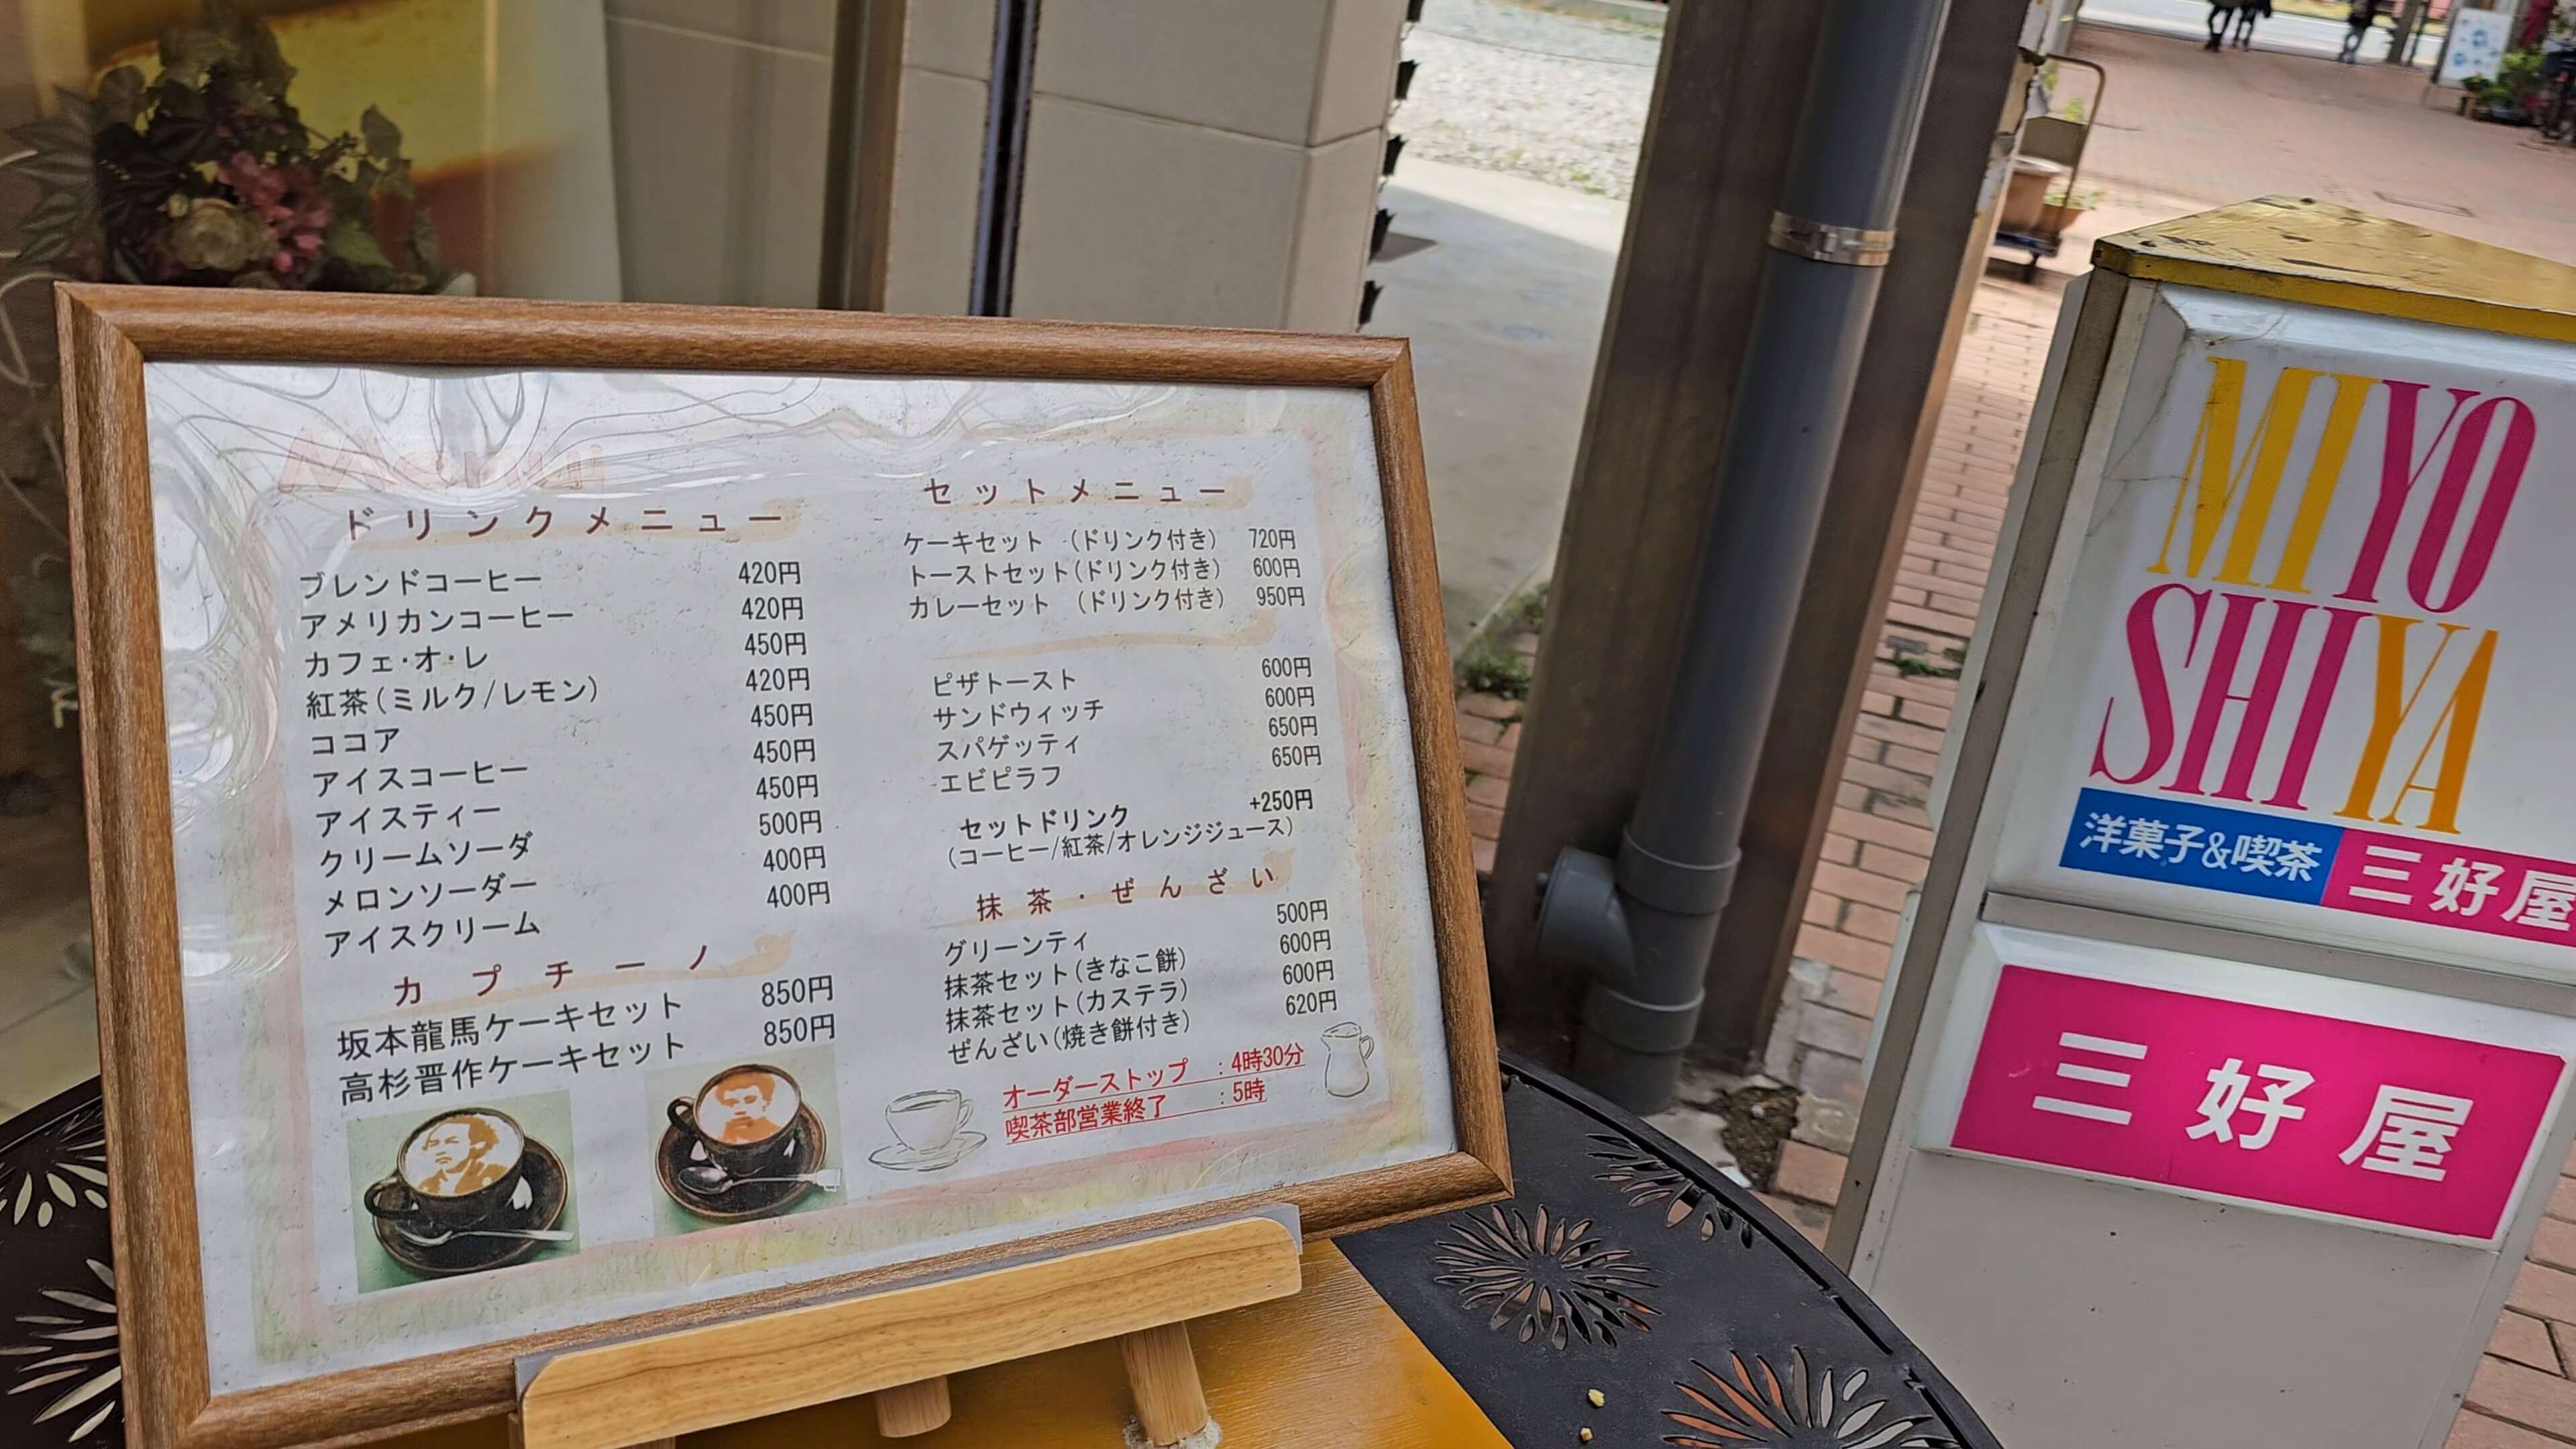 Menu
ドリンクメニュー
ブレンドコーヒー 420円
アメリカンコーヒー 420円
カフェ・オ・レ 450円
紅茶(ミルク/レモン) 420円
ココア 450円
アイスコーヒー 450円
アイスティー 450円
クリームソーダ 500円
メロンソーダー 400円
アイスクリーム 400円
カプチーノ
坂本龍馬ケーキセット 850円
高杉晋作ケーキセット 850円
セットメニュー
ケーキセット (ドリンク付き) 720円
トーストセット(ドリンク付き) 600円
カレーセット (ドリンク付き) 950円
ピザトースト 600円
サンドウィッチ 600円
スパゲッティ 650円
エビピラフ 650円
セットドリンク +250円
(コーヒー/紅茶/オレンジジュース)
抹茶・ぜんざい
グリーンティ 500円
抹茶セット(きなこ餅) 600円
抹茶セット(カステラ) 600円
ぜんざい(焼き餅付き) 620円
オーダーストップ :4時30分
喫茶部営業終了 :5時
MIYO
SHIYA
洋菓子&喫茶 三好屋
三好屋